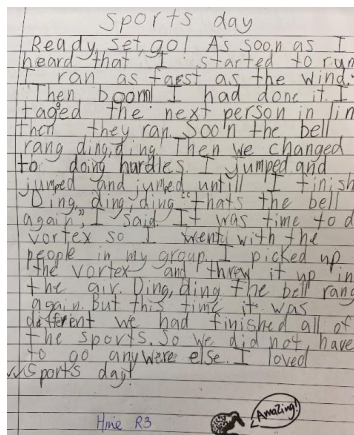 sports day
Ready, set, go! As soon as I
heard that I started to run
I ran as faest as the wind.
Then boom I had done it. I
taged the next person in lin
then they ran. Soo'n the bell
rang ding, ding. Then we changed
to doing hurdles. I jumped and
jumped and jumped untill I finish
"Ding, ding, ding" thats the bell
again," I said. It was time to d
vortex so I went with the
people in my group. I picked up
the vortex and threw it up in
the air. Ding, ding the bell rang
again. But this time it was
different we had finished all of
the sports. So we did not have
to go anywere else. I loved
sports day!
R3
Amazing!